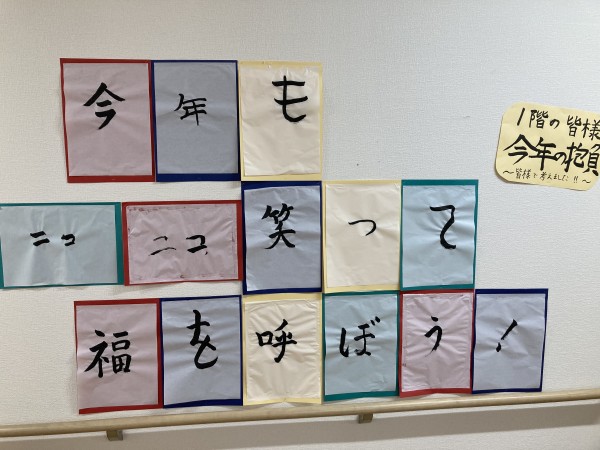 今年も
ニコニコ笑って
福を呼ぼう!
1階の皆様
今年の抱負
~皆様で考えました!!~